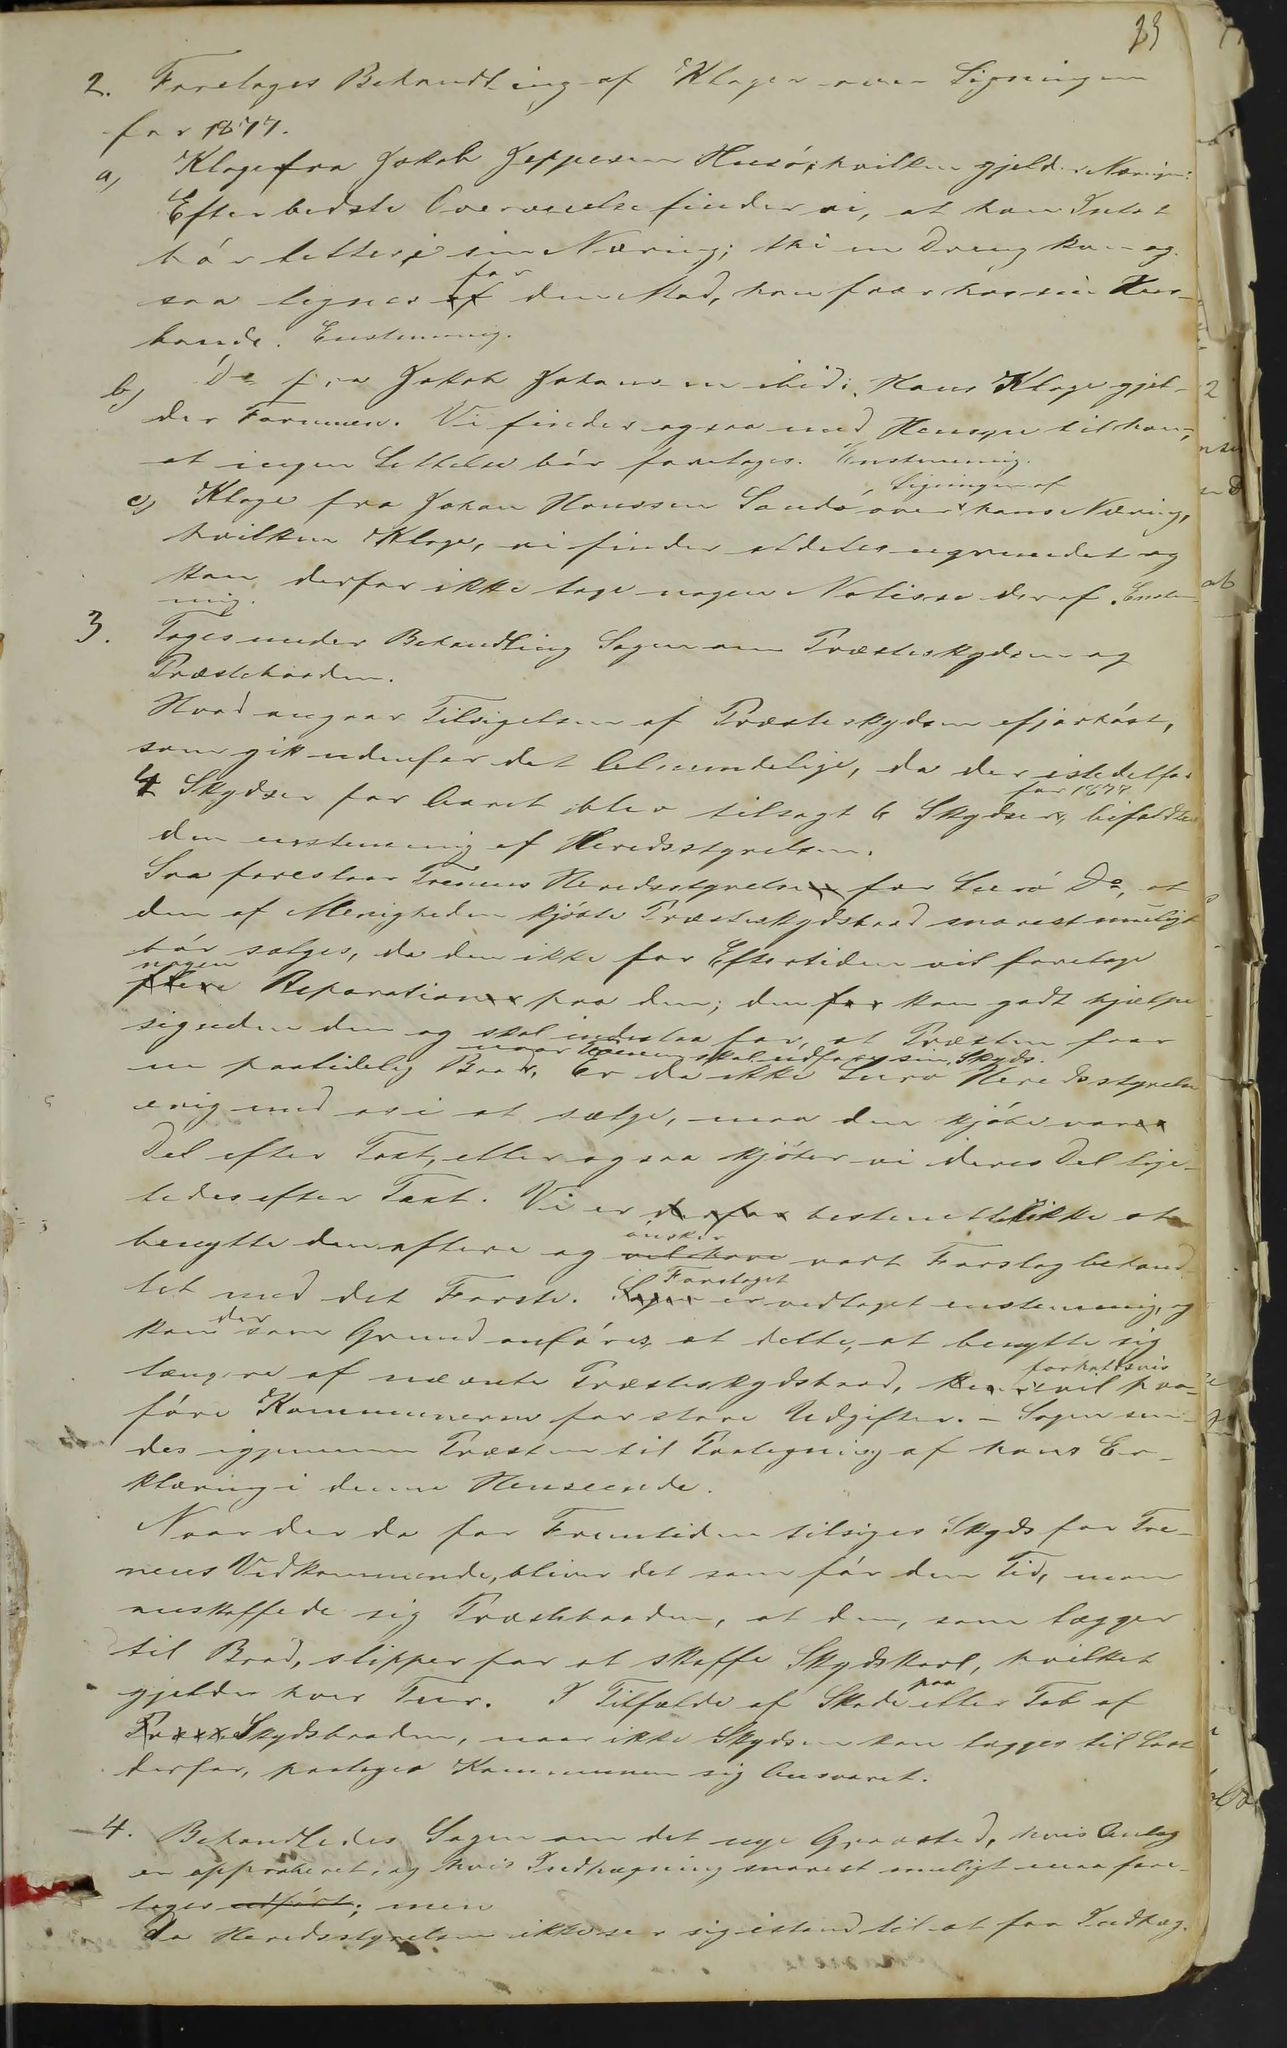 23
2. Foretoges Behandling af Klager over Ligningen
for 1877.
a, Klage fra Jakob Jeppesen Husö, hvilken gjelder Næringen:
Efter bedste Overveielse finder vi, at han Intet
bör lettes i sin Næring; thi en Dreng kan og-
saa lignes af for den Mad, han faar hos sin Hus-
bonde. Enstemmig.
b, Do fra Jakob Johansen ibid. Hans Klage gjel-
der Formuen. Vi finder ogsaa med Hensyn til ham,
at ingen Lettelse bör foretages. Enstemmig.
c, Klage fra Johan Hanssen Sandö over Ligningen af hans Næring,
hvilken Klage, vi finder aldeles ugrundet og
kan derfor ikke tage nogen Notisse deraf. Enstem-
mig.
3. Toges under Behandling Sagen om Præsteskydsen og
Præstebaaden.
Hvad angaar Tilsigelsen af Præsteskydsen ifjorhöst,
som gik udenfor det Almindelige, da der istedetfor
4 Skydser for Aaret blev tilsagt 6 Skydser for 1877, bifaldtes
den enstemmig af Heredsstyrelsen.
Saa foreslaar Trænens Heredsstyrelse for Lurö Do, at
den af Menigheden kjöbte Præsteskydsbaad snarest muligt
bör sælges, da den ikke for Eftertiden vil foretage
flere nogen Reparation paa den; den for kan godt hjælpe
sig uden den og skal indestaa for, at Præsten faar
en paalidelig Baad, naar Trænen skal udføre sin Skyds. Er da ikke Lurö Heredsstyrelse
enig med os i at sælge, maa den kjöbe vor
Del efter Taxt, eller ogsaa kjöber vi deres Del lige-
ledes efter Taxt. Vi er derfor bestemt ikke at
benytte den oftere og vil have önsker vort Forslag behand-
let med det Förste. Sagen Forslaget er vedtaget enstemmig, og
kan der som Grund anföres, at dette, at benytte sig
længere af nævnte Præsteskydsbaad, vil forholdsvis paa-
före Kommunerne for store Udgifter. – Sagen sen-
des igjennem Præsten til Paategning af hans Er-
klæring i denne Henseende.
Naar der da for Fremtiden tilsiges Skyds for Træ-
nens Vedkommende, bliver det som för den Tid, man
anskaffede sig Præstebaaden, at den, som lægger
til Baad, slipper for at skaffe Skydskarl, hvilket
gjelder hver Tur. I Tilfælde af Skade paa eller Tab af
Skydsbaaden, naar ikke Skydsen kan lægges til Last
derfor, paatager Kommunen sig Ansvaret.
4. Behandledes Sagen om det nye Gravsted, hvis Anlæg
er approberet, og hvis Indhægning snarest muligt maa fore-
tages udfört; men
da Heredsstyrelsen ikke ser sig istand til at faa Indhæg-